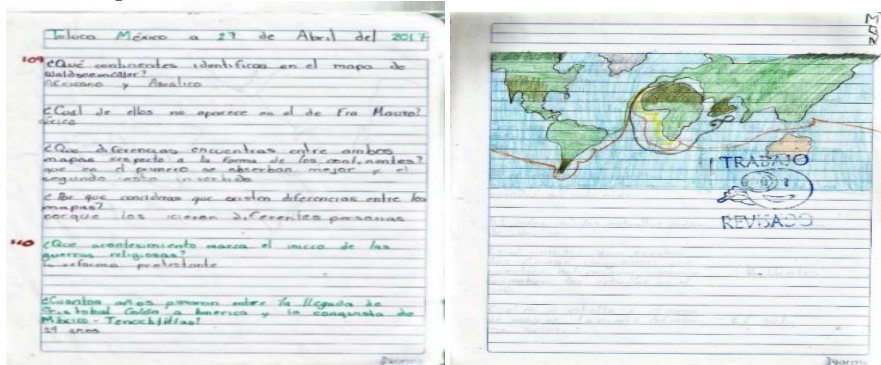 Toluca México a 27 de Abril del 2017
109
¿Qué continentes identificas en el mapa de
Waldseemüller?
Africano y Asiatico
¿Cual de ellos no aparece en el de Fra Mauro?
¿Que diferencias encuentras entre ambos
mapas respecto a la forma de los continentes?
que en el primero se observan mejor y el
segundo esta invertido
¿Por que consideras que existen diferencias entre los
mapas?
porque los icieron diferentes personas
110
¿Que acontesimiento marca el inicio de las
guerras religiosas?
la reforma protestante
¿Cuantos años pasaron entre la llegada de
Cristobal Colón a America y la conquista de
México - Tenochtitlan?
29 años
TRABAJO
REVISADO